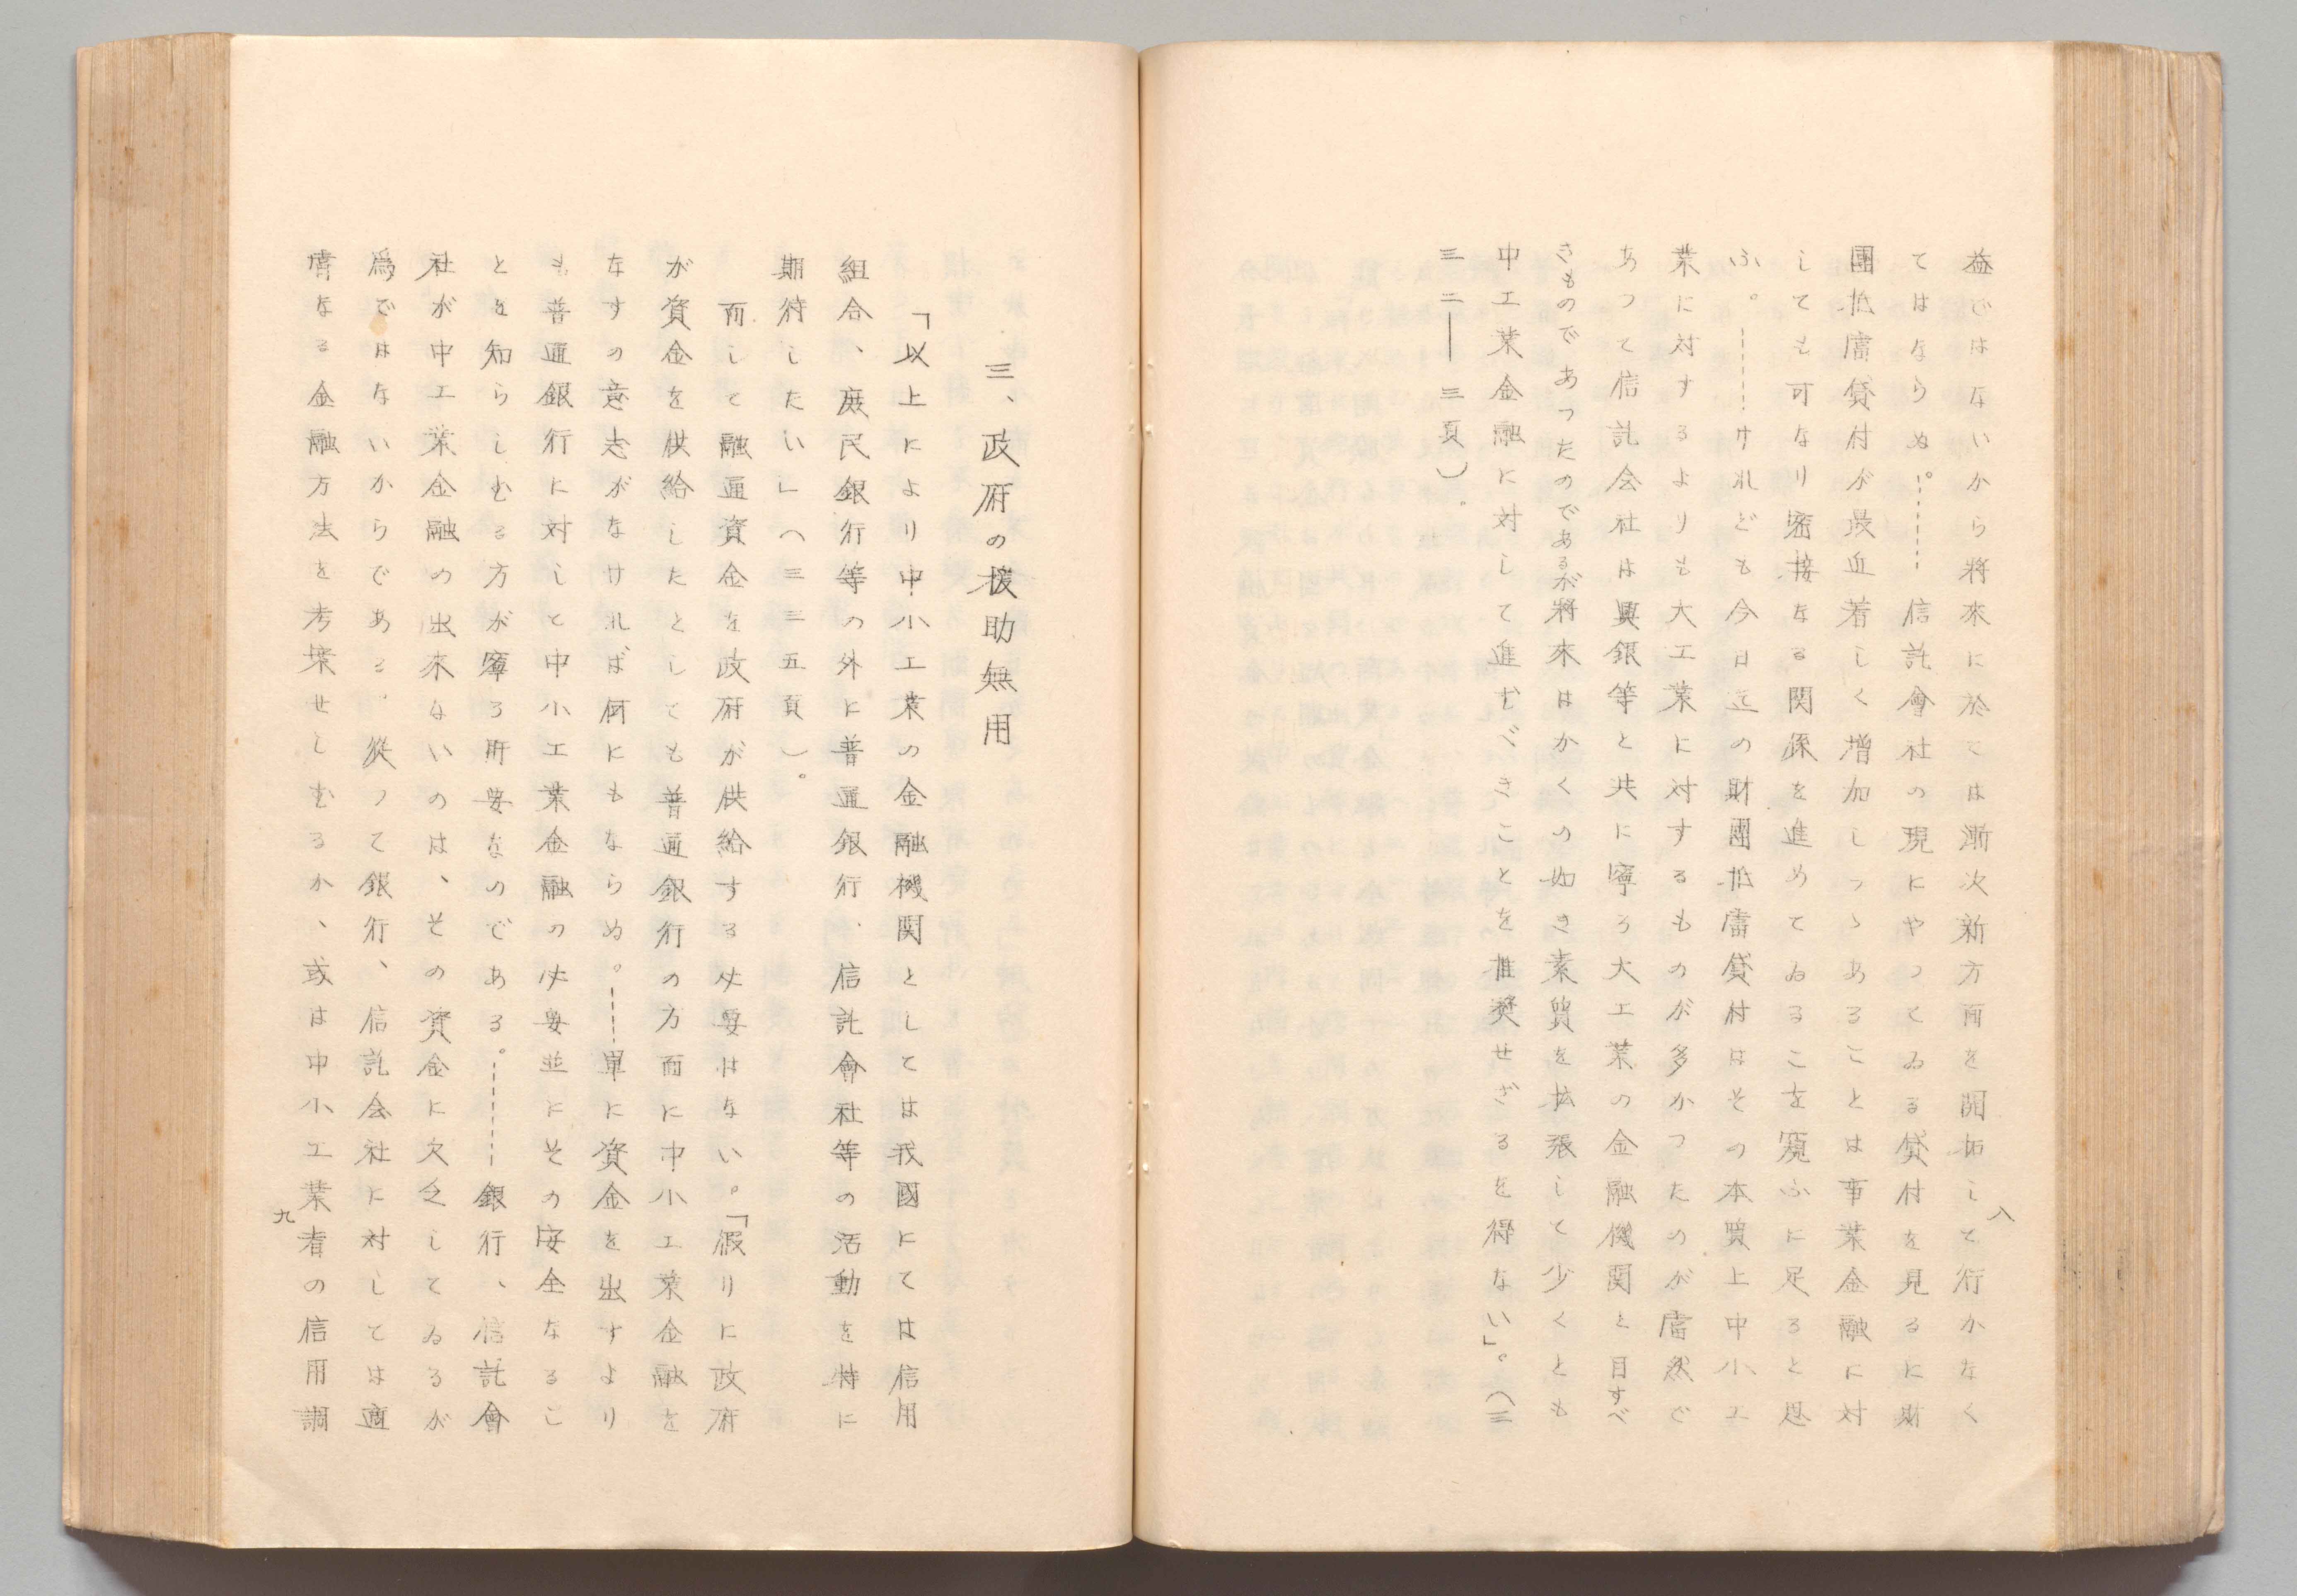 八
益ではないから將來に於ては漸次新方面を開拓して行かなく
てはならぬ。……信託會社の現にやつてゐる貸付を見るに財
團抵當貸付が最近著しく増加しつゝあることは事業金融に対
しても可なり密接なる関係を進めてゐるこを窺ふに足ると思
ふ。……けれども今日迄の財團抵當貸付はその本質上中小工
業に対するよりも大工業に対するものが多かつたのが當然で
あつて信託会社は興銀等と共に寧ろ大工業の金融機関と目すべ
きものであつたのであるが將來はかくの如き素質を拡張して少くとも
中工業金融に対して進むべきことを推奨せざるを得ない」。(三
三二——三三頁)。
三、政府の援助無用
「以上により中小工業の金融機関としては我國にては信用
組合、庶民銀行等の外に普通銀行、信託會社等の活動を特に
期待したい」(三三五頁)。
而して融通資金を政府が供給する必要はない。「假りに政府
が資金を供給したとしても普通銀行の方面に中小工業金融を
なすの意志がなければ何にもならぬ。……單に資金を出すより
も普通銀行に対して中小工業金融の必要並にその安全なるこ
とを知らしむる方が寧ろ肝要なのである。……銀行、信託會
社が中工業金融の出來ないのは、その資金に欠乏してゐるが
爲ではないからである。從つて銀行、信託会社に対しては適
當なる金融方法を考案せしむるか、或は中小工業者の信用調
九